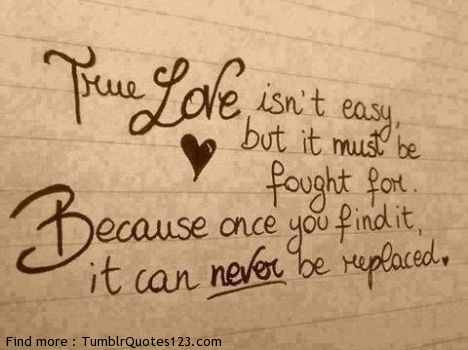 True Love isn't easy,
but it must be
fought for.
Because once you find it,
it can never be replaced.
Find more : TumblrQuotes123.com